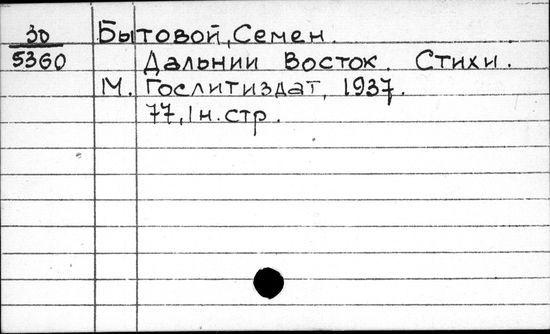 30 Бытовой, Семен.
5360 Дальнии Восток. Стихи.
М. Гослитиздат, 1937.
77, 1 н. стр.